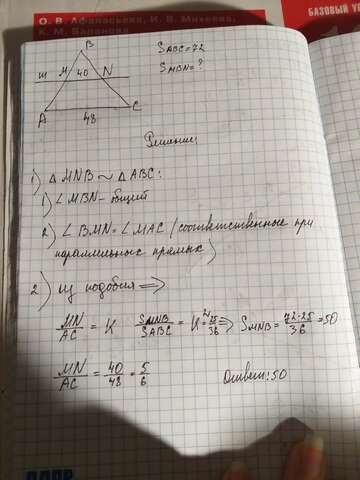 О. В. Афанасьева, И. В. Михеева,
К. М. Баранова
БАЗОВЫЙ
B
S ABC = 72
m M 40 N
S MBN = ?
A 48 C
Решение:
1) △ MNB ~ △ ABC:
1) ∠ MBN - общий
2) ∠ BMN = ∠ MAC (соответственные при
параллельных прямых)
2) из подобия ⇒
MN/AC = K S MNB/S ABC = K² = 25/36 ⇒ S MNB = 72·25/36 = 50
MN/AC = 40/48 = 5/6 Ответ: 50